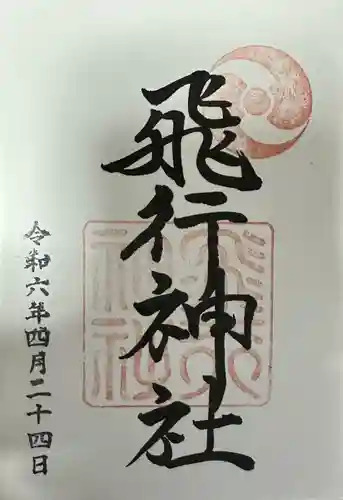 飛行神社
令和六年四月二十四日
飛行神社